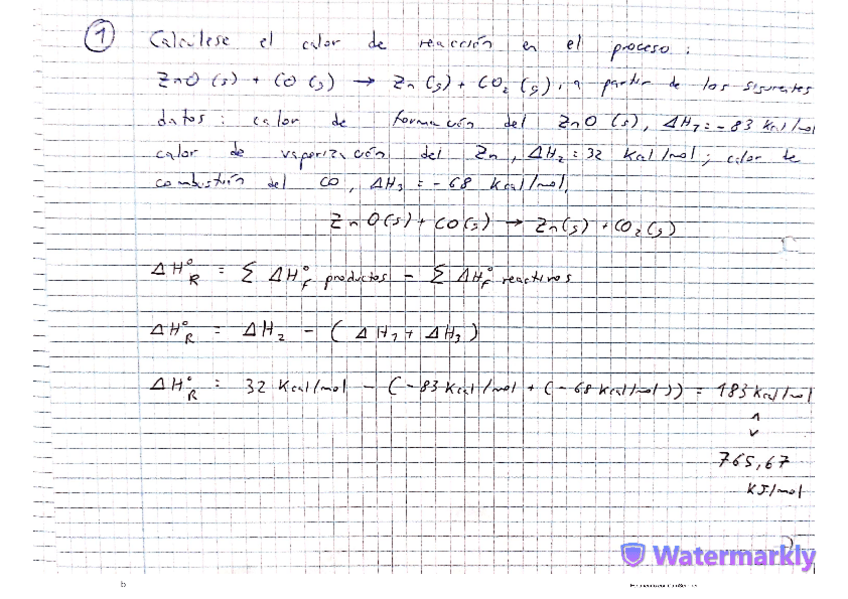 1 Calculese el calor de reacción en el proceso:
ZnO (s) + CO (g) → Zn (g) + CO2 (g), a partir de los siguientes
datos: calor de formación del ZnO (s), ΔH1 = -83 Kcal/mol
calor de vaporización del Zn, ΔH2 = 32 Kcal/mol; calor de
combustión del CO, ΔH3 = -68 Kcal/mol.
ZnO(s) + CO(g) → Zn(g) + CO2(g)
ΔH°R = Σ ΔH°f productos - Σ ΔH°f reactivos
ΔH°R = ΔH2 - (ΔH1 + ΔH3)
ΔH°R = 32 Kcal/mol - (-83 Kcal/mol + (-68 Kcal/mol)) = 183 Kcal/mol
765,67
KJ/mol
Watermarkly